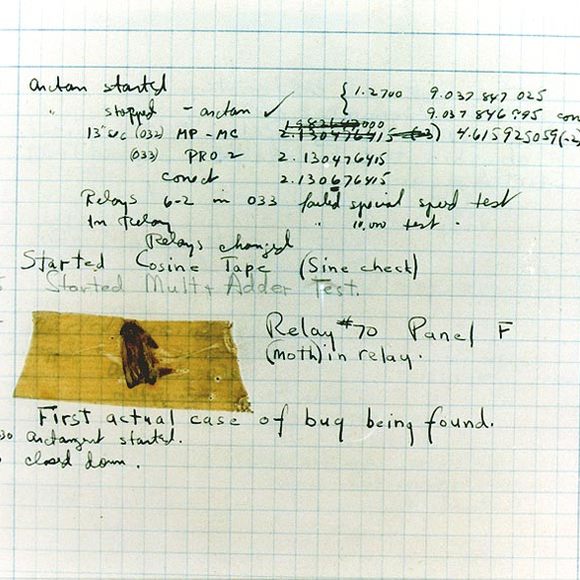 arctan started { 1.2700 9.037 847 025
" stopped - arctan ✓ 9.037 846 995
(032) MP - MC 2.130476415 4.615925059(-2
(033) PRO 2 2.130476415
correct 2.130676415
Relays 6-2 in 033 failed special speed test
In Relay " 10,000 test.
Relays changed
Started Cosine Tape (Sine check)
Started Mult + Adder Test.
Relay #70 Panel F
(moth) in relay.
First actual case of bug being found.
arctangent started.
closed down.